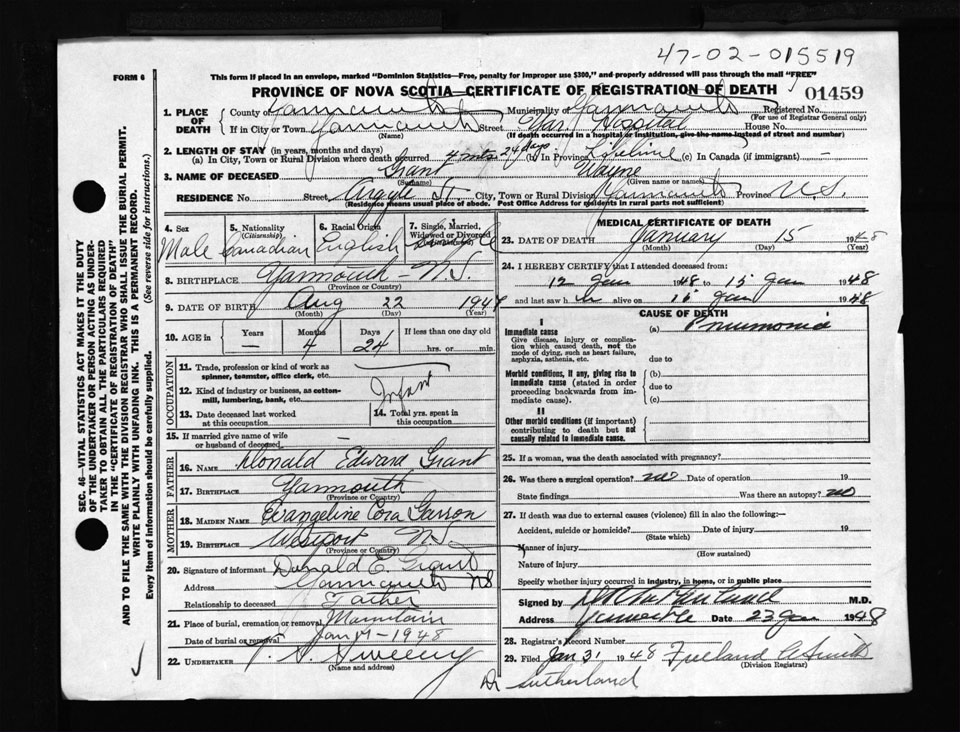 47-02-015519
FORM 6
This form if placed in an envelope, marked "Dominion Statistics—Free, penalty for improper use $300," and properly addressed will pass through the mail "FREE"
PROVINCE OF NOVA SCOTIA—CERTIFICATE OF REGISTRATION OF DEATH
01459
1. PLACE OF DEATH
County of Yarmouth Municipality of Yarmouth Registered No.
(For use of Registrar General only)
If in City or Town Yarmouth Street Yar. Hospital House No.
(Name) (If death occurred in a hospital or institution, give the name instead of street and number)
2. LENGTH OF STAY (in years, months and days)
(a) In City, Town or Rural Division where death occurred 4 mts. 24 days (b) In Province Lifetime (c) In Canada (if immigrant) —
3. NAME OF DECEASED Grant Wayne
(Surname) (Given name or names)
RESIDENCE No. Street Argyle St. City, Town or Rural Division Yarmouth Province N.S.
(Residence means usual place of abode. Post Office Address for residents in rural parts not sufficient)
4. Sex
Male
5. Nationality
(Citizenship)
Canadian
6. Racial Origin
English
7. Single, Married, Widowed or Divorced
8. BIRTHPLACE Yarmouth - N.S.
(Province or Country)
9. DATE OF BIRTH Aug 22 1947
(Month) (Day) (Year)
10. AGE in
Years Months Days If less than one day old
— 4 24 hrs. or min.
OCCUPATION
11. Trade, profession or kind of work as spinner, teamster, office clerk, etc.
12. Kind of industry or business, as cotton-mill, lumbering, bank, etc.
Infant
13. Date deceased last worked at this occupation
14. Total yrs. spent in this occupation
15. If married give name of wife or husband of deceased —
FATHER
16. NAME Donald Edward Grant
17. BIRTHPLACE Yarmouth
(Province or Country)
MOTHER
18. MAIDEN NAME Evangeline Cora Garron
19. BIRTHPLACE Westport N.S.
(Province or Country)
20. Signature of informant Donald E. Grant
Address Yarmouth NS
Relationship to deceased Father
21. Place of burial, cremation or removal Mountain
Date of burial or removal Jan 17-1948
22. UNDERTAKER Sweeny
(Name and address)
MEDICAL CERTIFICATE OF DEATH
23. DATE OF DEATH January 15 1948
(Month) (Day) (Year)
24. I HEREBY CERTIFY that I attended deceased from:
12 Jan 1948 to 15 Jan 1948
and last saw h im alive on 15 Jan 1948
CAUSE OF DEATH
I
Immediate cause
Give disease, injury or complication which caused death, not the mode of dying, such as heart failure, asphyxia, asthenia, etc.
(a) Pneumonia
due to
Morbid conditions, if any, giving rise to immediate cause (stated in order proceeding backwards from immediate cause).
(b)
due to
(c)
II
Other morbid conditions (if important) contributing to death but not causally related to immediate cause.
25. If a woman, was the death associated with pregnancy?
26. Was there a surgical operation? no Date of operation 19
State findings Was there an autopsy? no
27. If death was due to external causes (violence) fill in also the following:—
Accident, suicide or homicide? Date of injury 19
(State which)
Manner of injury
(How sustained)
Nature of injury
Specify whether injury occurred in industry, in home, or in public place
Signed by M.D.
Address Date 23 Jan 1948
28. Registrar's Record Number
29. Filed Jan 31 1948 Freeland A Smith
(Division Registrar)
Dr Sutherland
SEC. 46—VITAL STATISTICS ACT MAKES IT THE DUTY
OF THE UNDERTAKER OR PERSON ACTING AS UNDER-
TAKER TO OBTAIN ALL THE PARTICULARS REQUIRED
IN THE "CERTIFICATE OF REGISTRATION OF DEATH"
AND TO FILE THE SAME WITH THE DIVISION REGISTRAR WHO SHALL ISSUE THE BURIAL PERMIT.
WRITE PLAINLY WITH UNFADING INK. THIS IS A PERMANENT RECORD.
Every item of information should be carefully supplied. (See reverse side for instructions.)